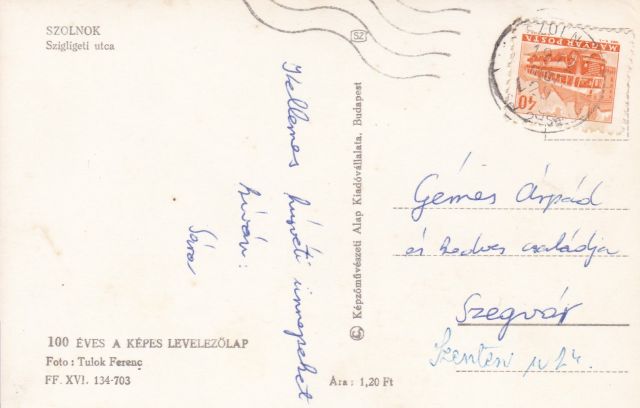 SZOLNOK
Szigligeti utca
Kellemes húsvéti ünnepeket
kíván:
Sára
100 ÉVES A KÉPES LEVELEZŐLAP
Foto: Tulok Ferenc
FF. XVI. 134-703
Képzőművészeti Alap Kiadóvállalata, Budapest
Ára: 1,20 Ft
SZ
MAGYAR POSTA
40
SZOLNOK
Gémes Árpád
és kedves családja
Szegvár
Szentesi u